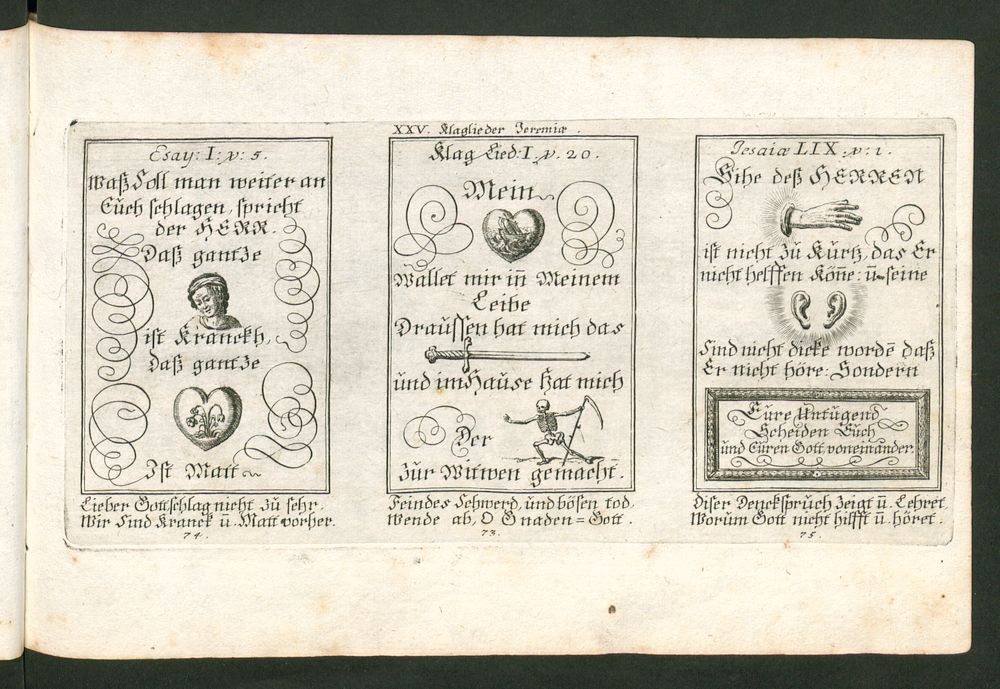 XXV. Klaglieder Jeremiæ.
Esay: I: v: 5.
Waß Soll man weiter an
Euch schlagen, spricht
der HERR.
Daß gantze
ist Kranckh,
Daß gantze
Ist Matt
Lieber Gott schlag nicht zu sehr,
Wir Sind Kranck u. Matt vorher.
74.
Klag Lied: I. v. 20.
Mein
Wallet mir in̄ Meinem
Leibe
Draussen hat mich das
und im Hause hat mich
Der
zur Witwen gemacht.
Feindes Schwerd, und bösen tod,
Wende ab, O Gnaden=Gott.
73.
Jesaiæ LIX. v: 1.
Sihe deß HERREN
ist nicht zu Kurtz, das Er
nicht helffen Kön̄e: ū. seine
Sind nicht dicke wordē daß
Er nicht höre: Sondern
Eure Untugend
Scheiden Euch
und Euren Gott, voneinander.
Diser Denckspruch Zeigt ū. Lehret
Worum Gott nicht hilfft ū. höret.
75.